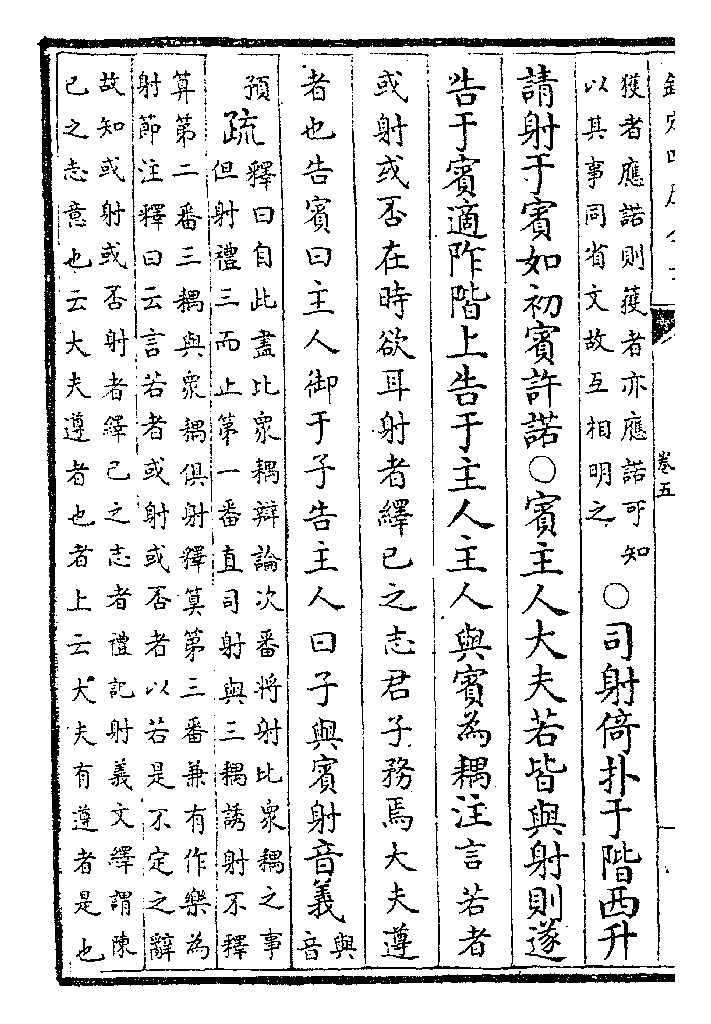 卷五
獲者應諾則獲者亦應諾可知
以其事同省文故互相明之
○司射倚扑于階西升
請射于賓如初賓許諾○賓主人大夫若皆與射則遂
告于賓適阼階上告于主人主人與賓為耦注言若者
或射或否在時欲耳射者繹已之志君子務焉大夫遵
者也告賓曰主人御于子告主人曰子與賓射音義
與
音
預
疏
釋曰自此盡比衆耦辯論次番將射比衆耦之事
但射禮三而止第一番直司射與三耦誘射不釋
算第二番三耦與衆耦俱射釋筭第三番兼有作樂為
射節注釋曰云言若者或射或否者以若是不定之辭
故知或射或否射者繹已之志者禮記射義文繹謂陳
已之志意也云大夫遵者也者上云大夫有遵者是也